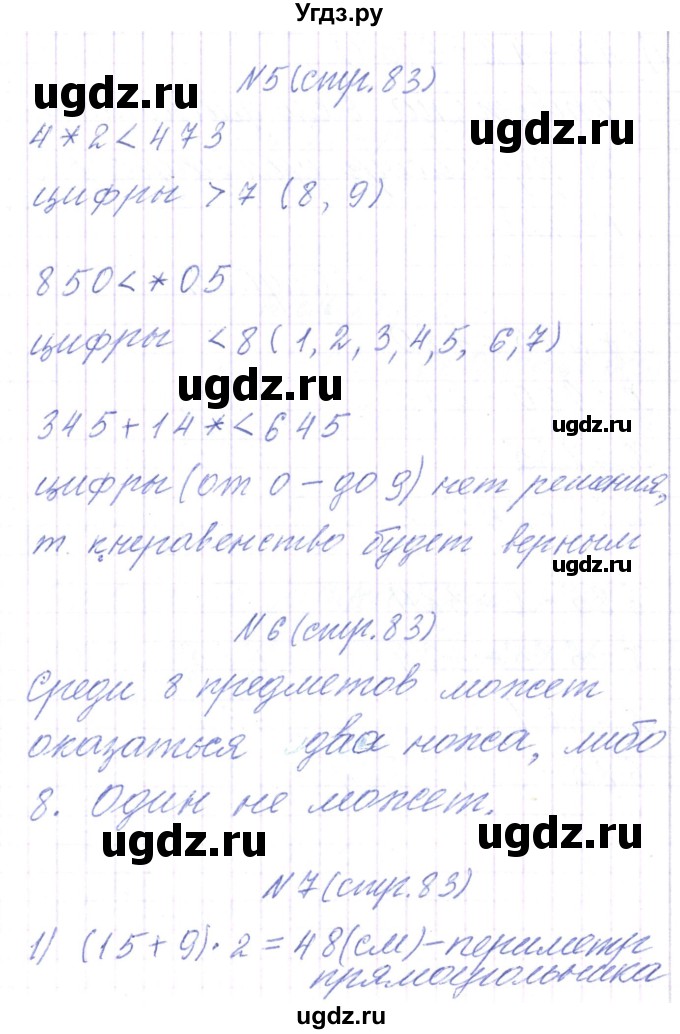 Угдз.ру
N5(стр.83)
ugdz.ru
ugdz.ru
4*2<473
цифры >7 (8, 9)
850<*05
цифры <8(1,2,3,4,5, 6,7)
ugdz.ru
345+14*<645
ugdz.ru
цифры(от 0-до 9) нет решения,
т. к. неравенство будет верным
ugdz.ru
N6(стр.83)
Среди 8 предметов может
оказаться два ножа, либо
8. Один не может.
ugdz.ru
ugdz.ru
N7(стр.83)
1) (15+9)·2=48(см)-периметр
прямоугольника
ugdz.ru